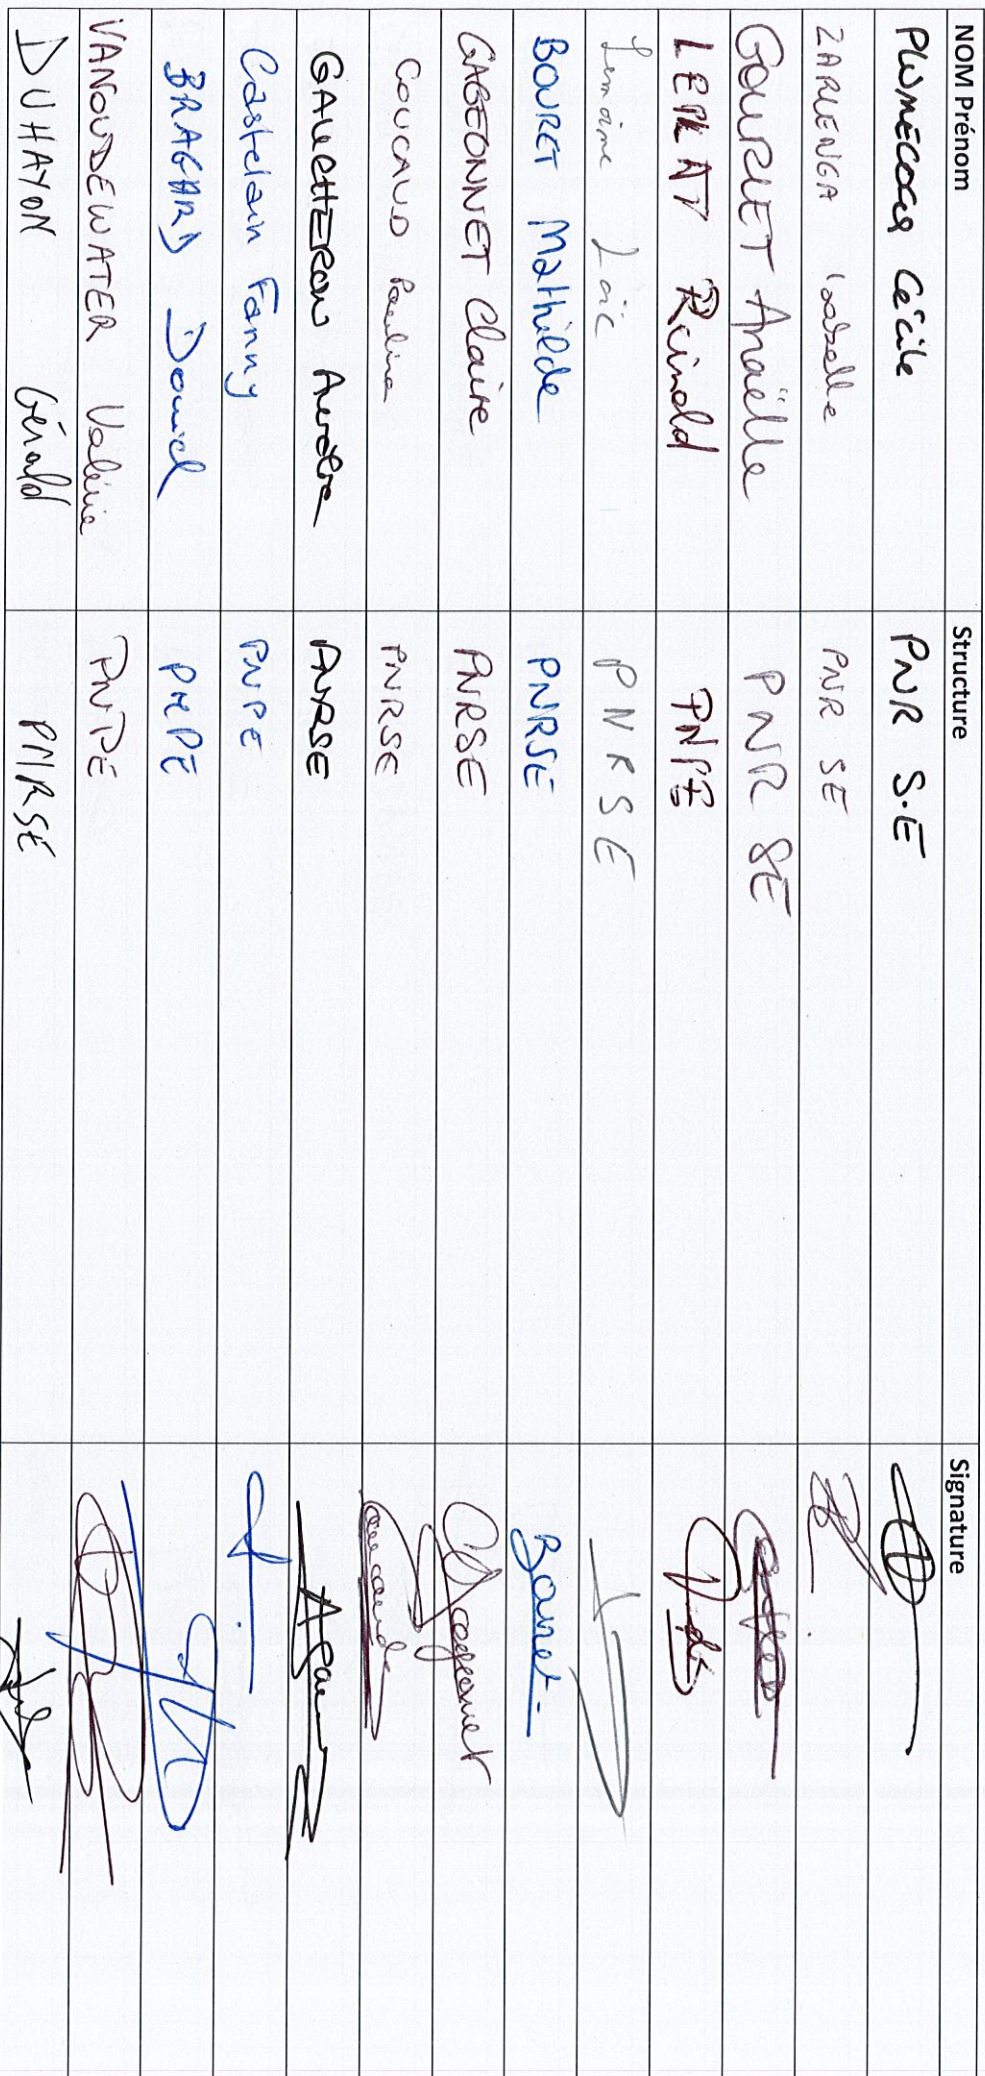 NOM Prénom Structure Signature
PLUMECOCQ Cécile PNR S.E
ZARLENGA Isabelle PNR SE
GOURLET Anaëlle PNR SE
LEPLAT Reinold PNPE
Lemoine Loïc PNRSE
BOURET Mathilde PNRSE Bouret
GAGEONNET Claire PNRSE
COUCAUD Pauline PNRSE
GAUCHERON Aurélie PNRSE
Castelain Fanny PNPE
BRAGARD Daniel PNPE
VANOUDEWATER Valérie PNPE
DUHAYON Gérald PNRSE